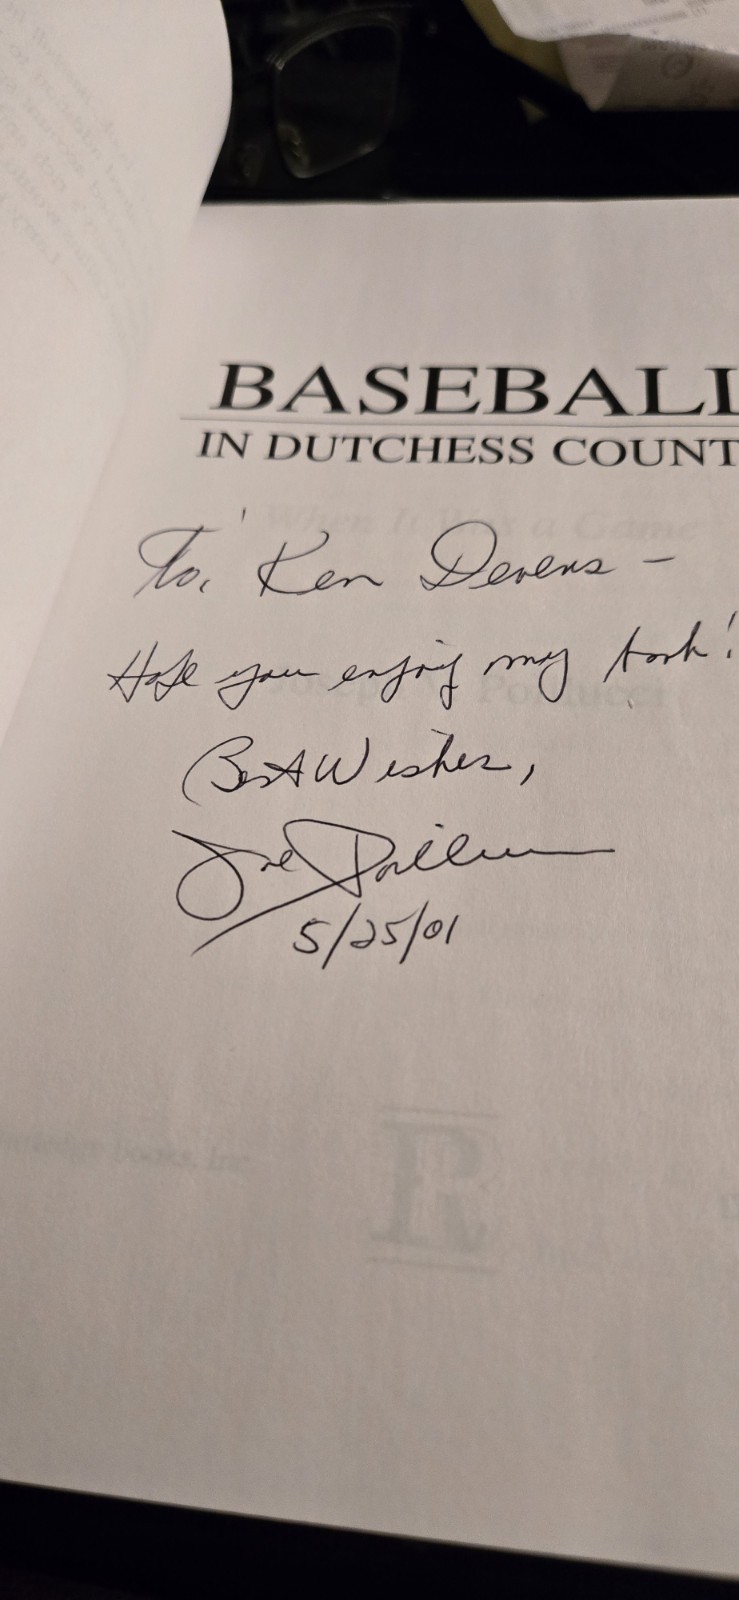 BASEBALL
IN DUTCHESS COUNT
When It Was a Game
To, Ken Devens -
Hope you enjoy my book!
Best Wishes,
Joe
5/25/01
Books, Inc
R